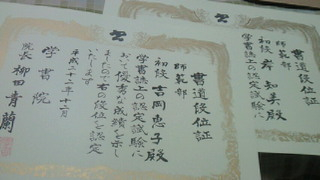 書道段位証
師範部
初段 吉岡恵子殿
学書誌上の認定試験に
おいて優秀な成績を示し
ましたので右の段位を認定
いたします
平成二十二年十二月
学書院
院長 柳田青蘭
書道段位証
師範部
初段 岸 知美殿
学書誌上の認定試験に